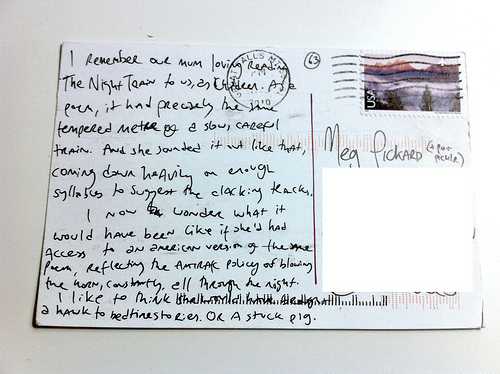 I Remember our mum loving Reading
The Night Train to us, as Children. As a
poem, it had precisely the same
tempered metre of a slow, careful
train. And she sounded it out like that,
coming down heavily on enough
syllables to suggest the clacking tracks.
I now wonder what it
would have been like if she'd had
Access to an american version of the same
Poem, reflecting the AMTRAK policy of blowing
the horn, constantly, all through the night.
I like to think
a hawk to bedtime stories. OR A stuck pig.
GREAT FALLS
63
USA
Meg Pickard